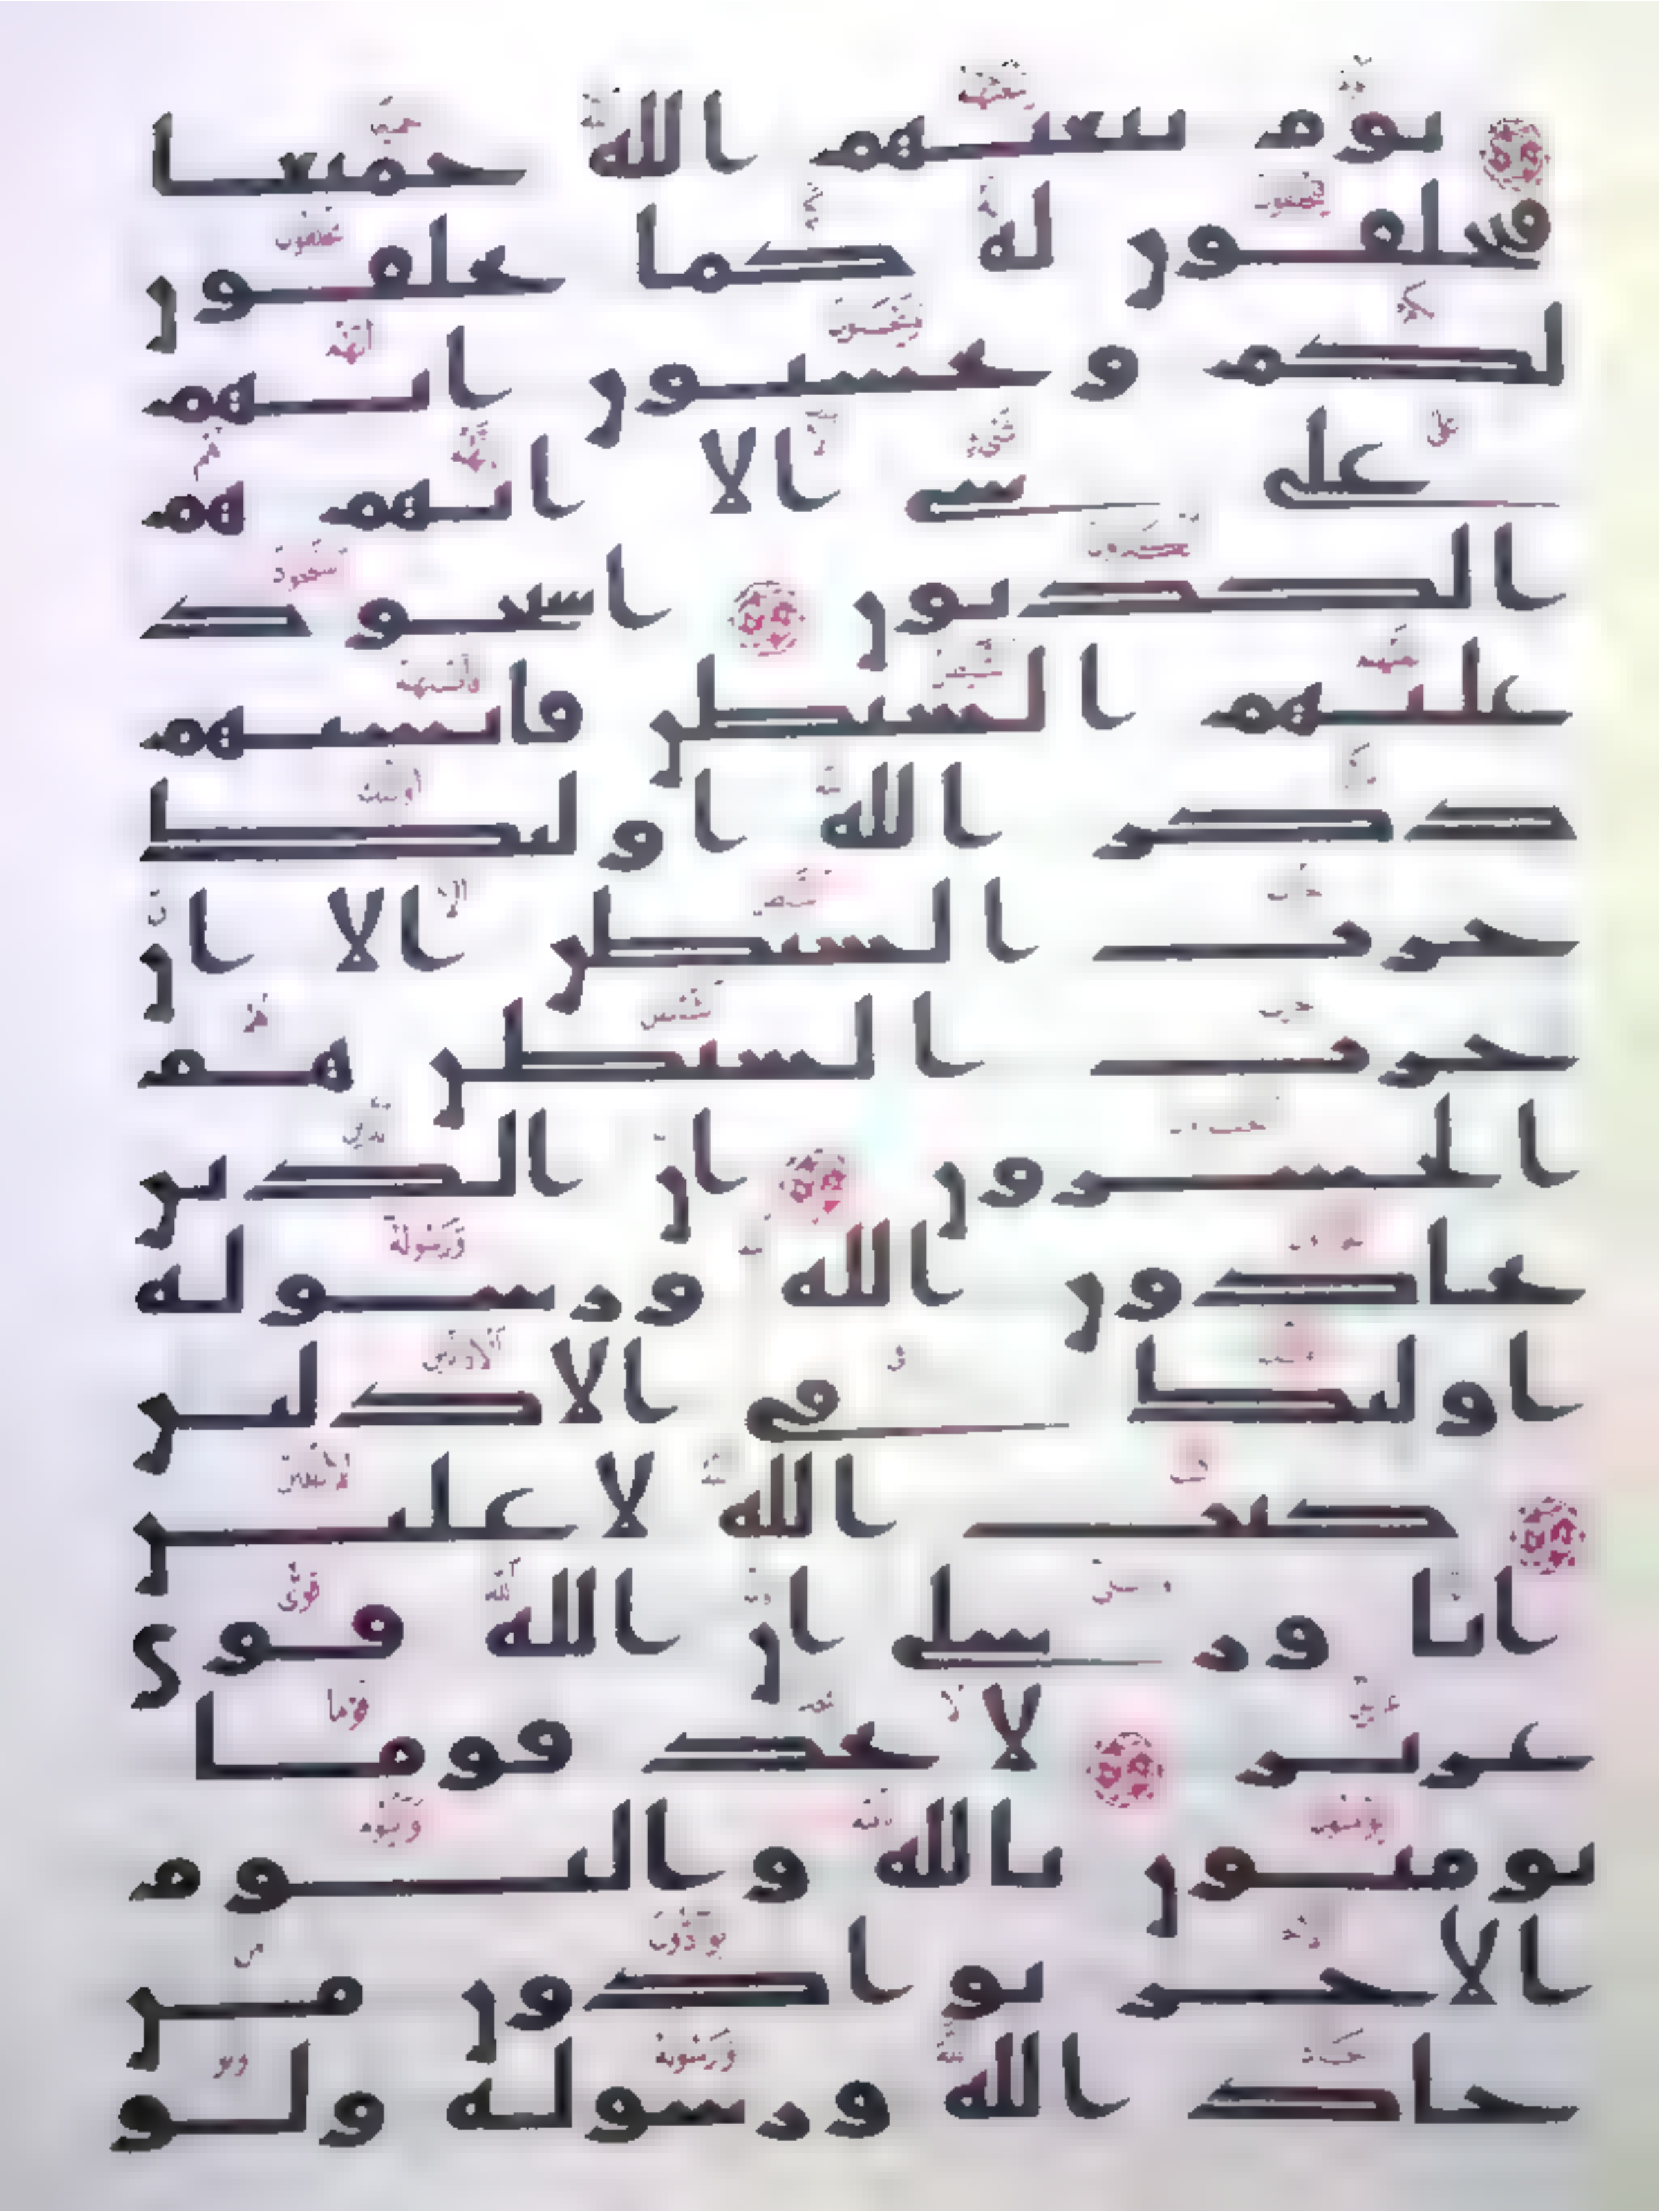 يوم يبعثهم الله جميعا
فيحلفون له كما يحلفون
لكم و يحسبون انهم
على شى الا انهم هم
الكذبون استحوذ
عليهم الشيطن فانسيهم
ذكر الله اوليك
حزب الشيطن الا ان
حزب الشيطن هم
الخسرون ان الذين
يحادون الله ورسوله
اوليك فى الاذلين
كتب الله لاغلبن
انا ورسلى ان الله قوى
عزيز لا تجد قوما
يومنون بالله واليوم
الاخر يوادون من
حاد الله ورسوله ولو